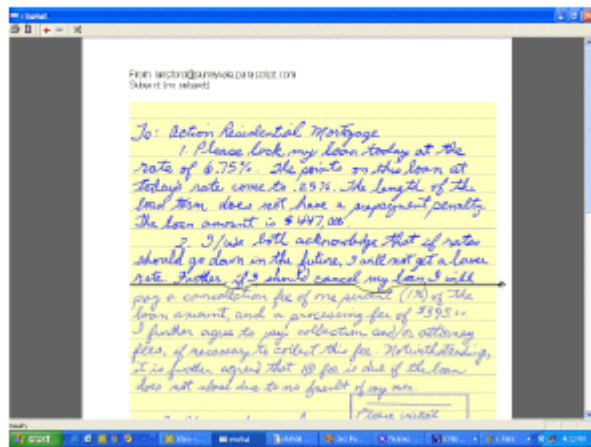 Subject: (no subject)
To: Action Residential Mortgage
1. Please lock my loan today at the
rate of 6.75%. The points on this loan at
today's rate come to .25%. The length of the
loan term does not have a prepayment penalty.
The loan amount is $447,000.
2. I/we both acknowledge that if rates
should go down in the future, I will not get a lower
rate. Further, if I should cancel my loan I will
pay a cancellation fee of one percent (1%) of the
loan amount, and a processing fee of $395.00.
I further agree to pay collection and/or attorney
fees, if necessary to collect this fee. Notwithstanding,
it is further agreed that no fee is due if the loan
does not close due to no fault of my own.
Please initial
start